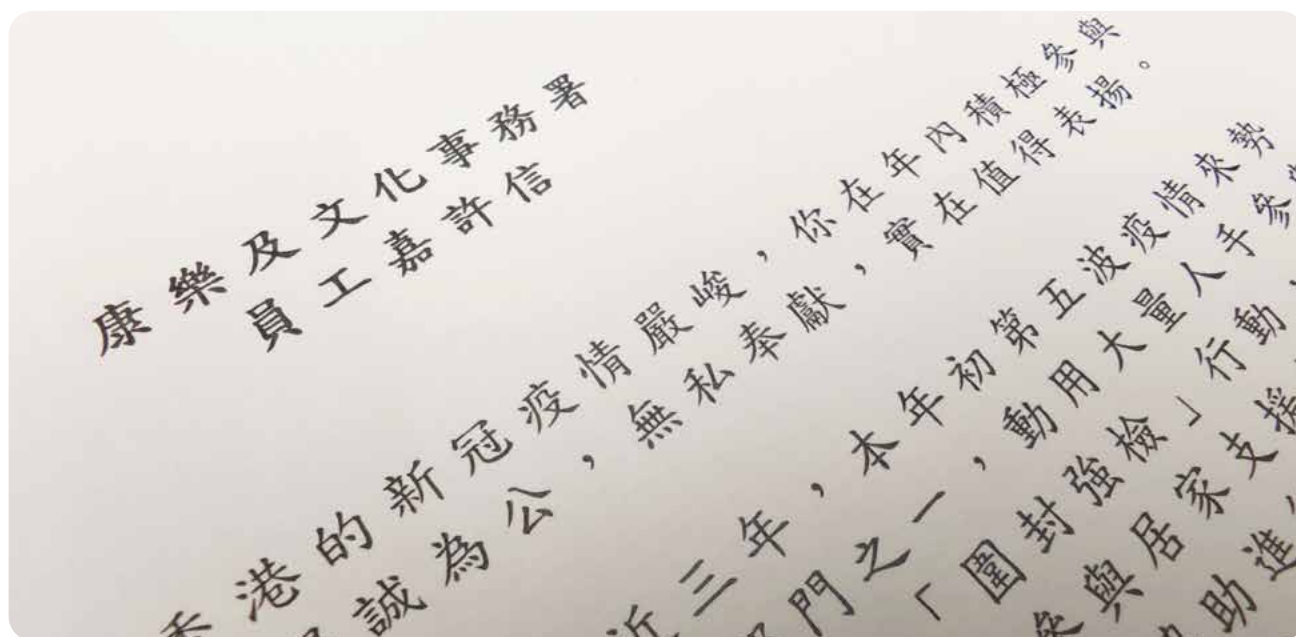 康樂及文化事務署
員工嘉許信
香港的新冠疫情嚴峻,你在年內積極參與
誠為公,無私奉獻,實在值得表揚。
近三年,本年初第五波疫情來勢
部門之一,動用大量人手參與
「圍封強檢」行動,
參與居家支援
助進行